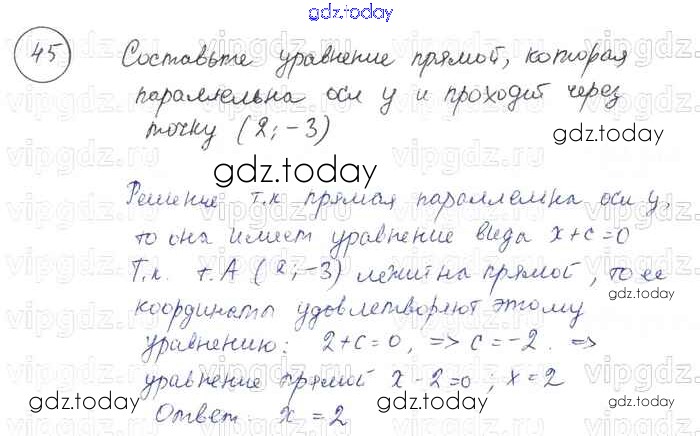 gdz.today
45 Составьте уравнение прямой, которая
параллельна оси y и проходит через
точку (2;-3)
gdz.today
gdz.today
Решение т.к прямая параллельна оси y,
то она имеет уравнение вида x+c=0
Т.к. т.A (2;-3) лежит на прямой, то ее
gdz.today
координаты удовлетворяют этому
уравнению: 2+c=0, => c=-2. =>
gdz.today
уравнение прямой x-2=0; x=2
gdz.today
gdz.today
Ответ: x=2